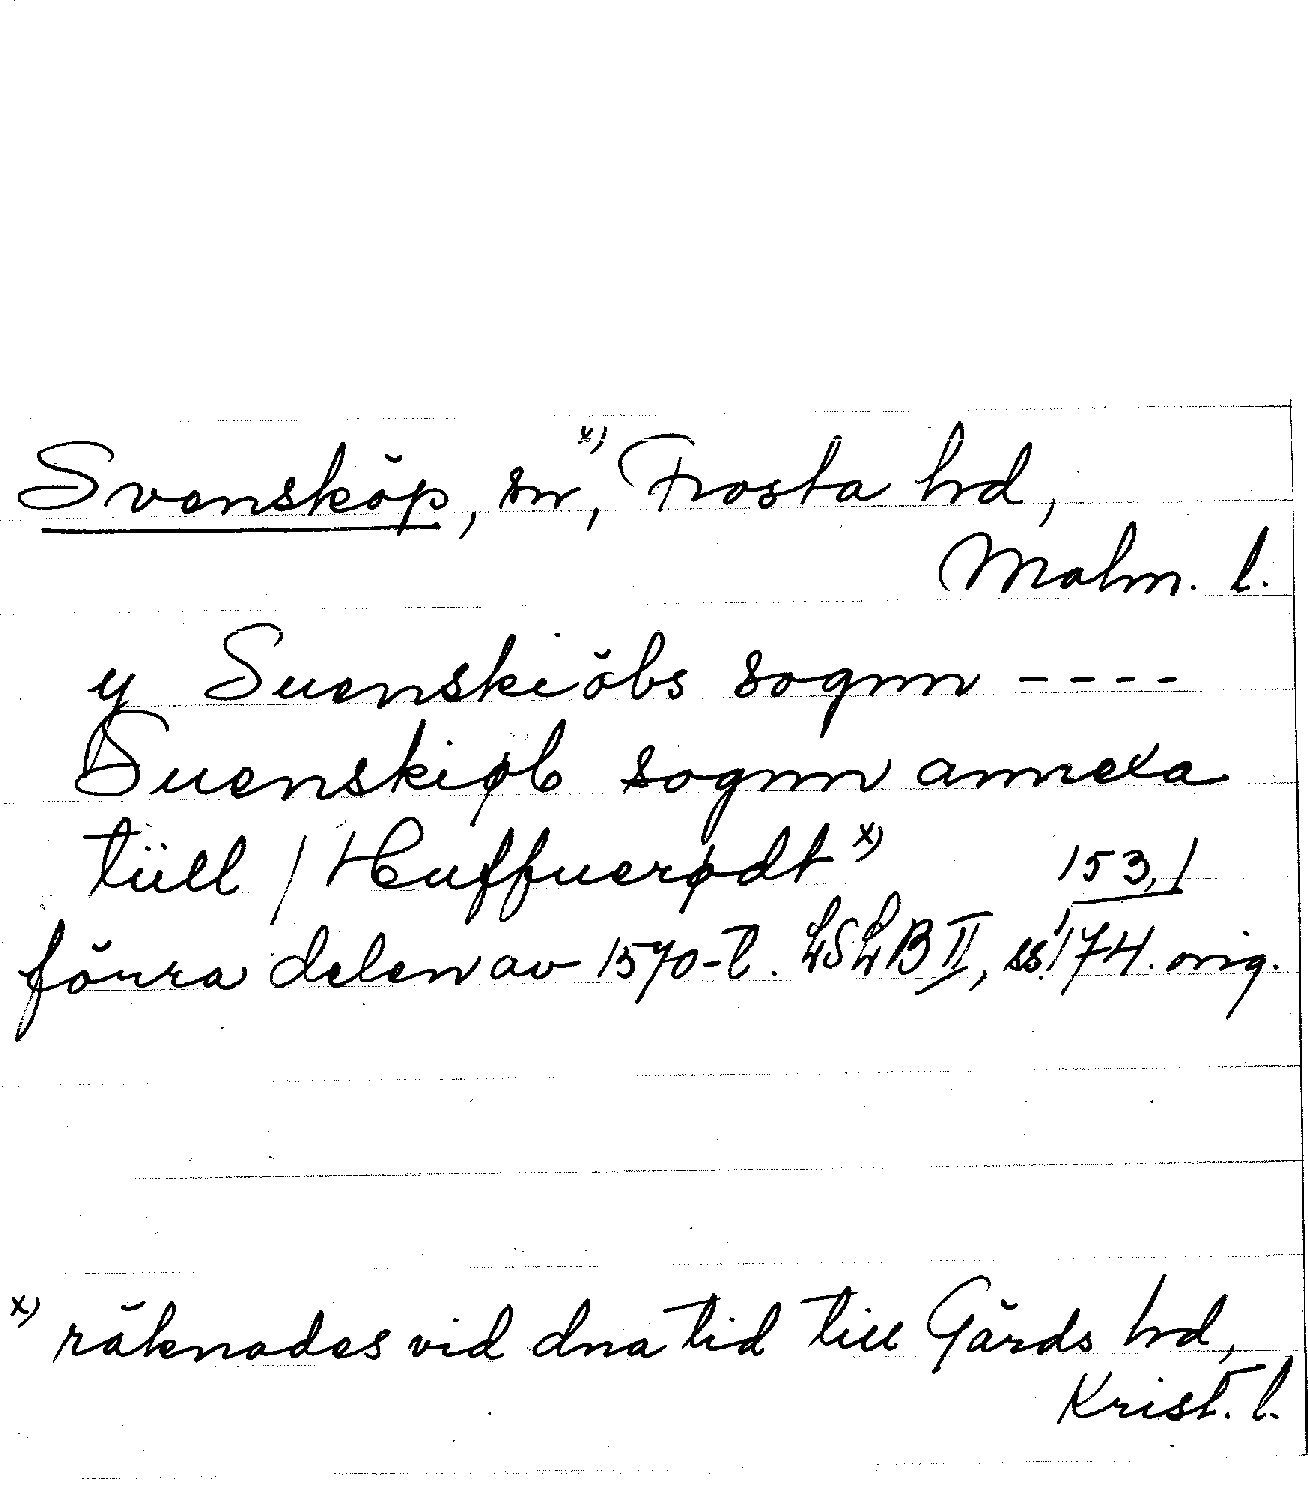 Svensköp, sn, x) Frosta hd,
Malm. l.
y Suenskiöbs sognn ----
Suenskiøb sognn annexa
tüll / Huffuerødt x) 153, 1
förra delen av 1570-t. LSLB II, ss. 174. orig.
x) räknades vid dna tid till Gärds hd,
Krist. l.